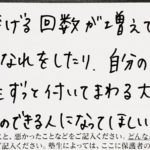 げる回数が増えて
なれをしたり、自分の
生ずっと付いてまわる大
のできる人になってほしい
と、悪かったことなどをご記入ください。どんな
ご記入ください。塾生によっては、ここに保護者の